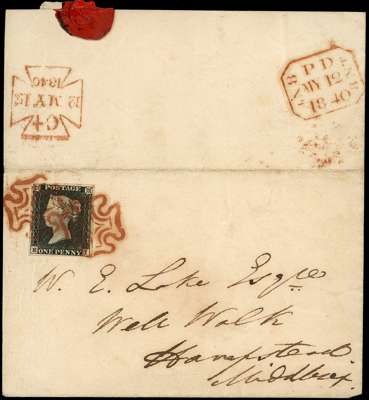 P D
MY 12
1840
1840
13 MA 13
C+
POSTAGE
ONE PENNY
W. E. Lake Esqre
Well Walk
Hampstead.
Middlesex.